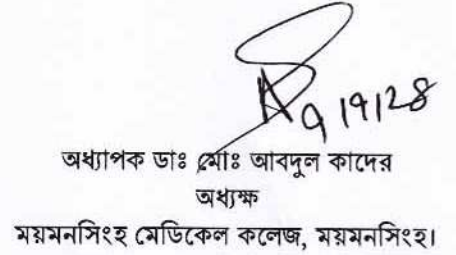 ৭/৭/২৪
অধ্যাপক ডাঃ মোঃ আবদুল কাদের
অধ্যক্ষ
ময়মনসিংহ মেডিকেল কলেজ, ময়মনসিংহ।